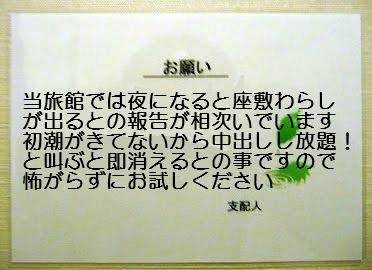 お願い
当旅館では夜になると座敷わらし
が出るとの報告が相次いでいます
と叫ぶと即消えるとの事ですので
怖がらずにお試しください
支配人